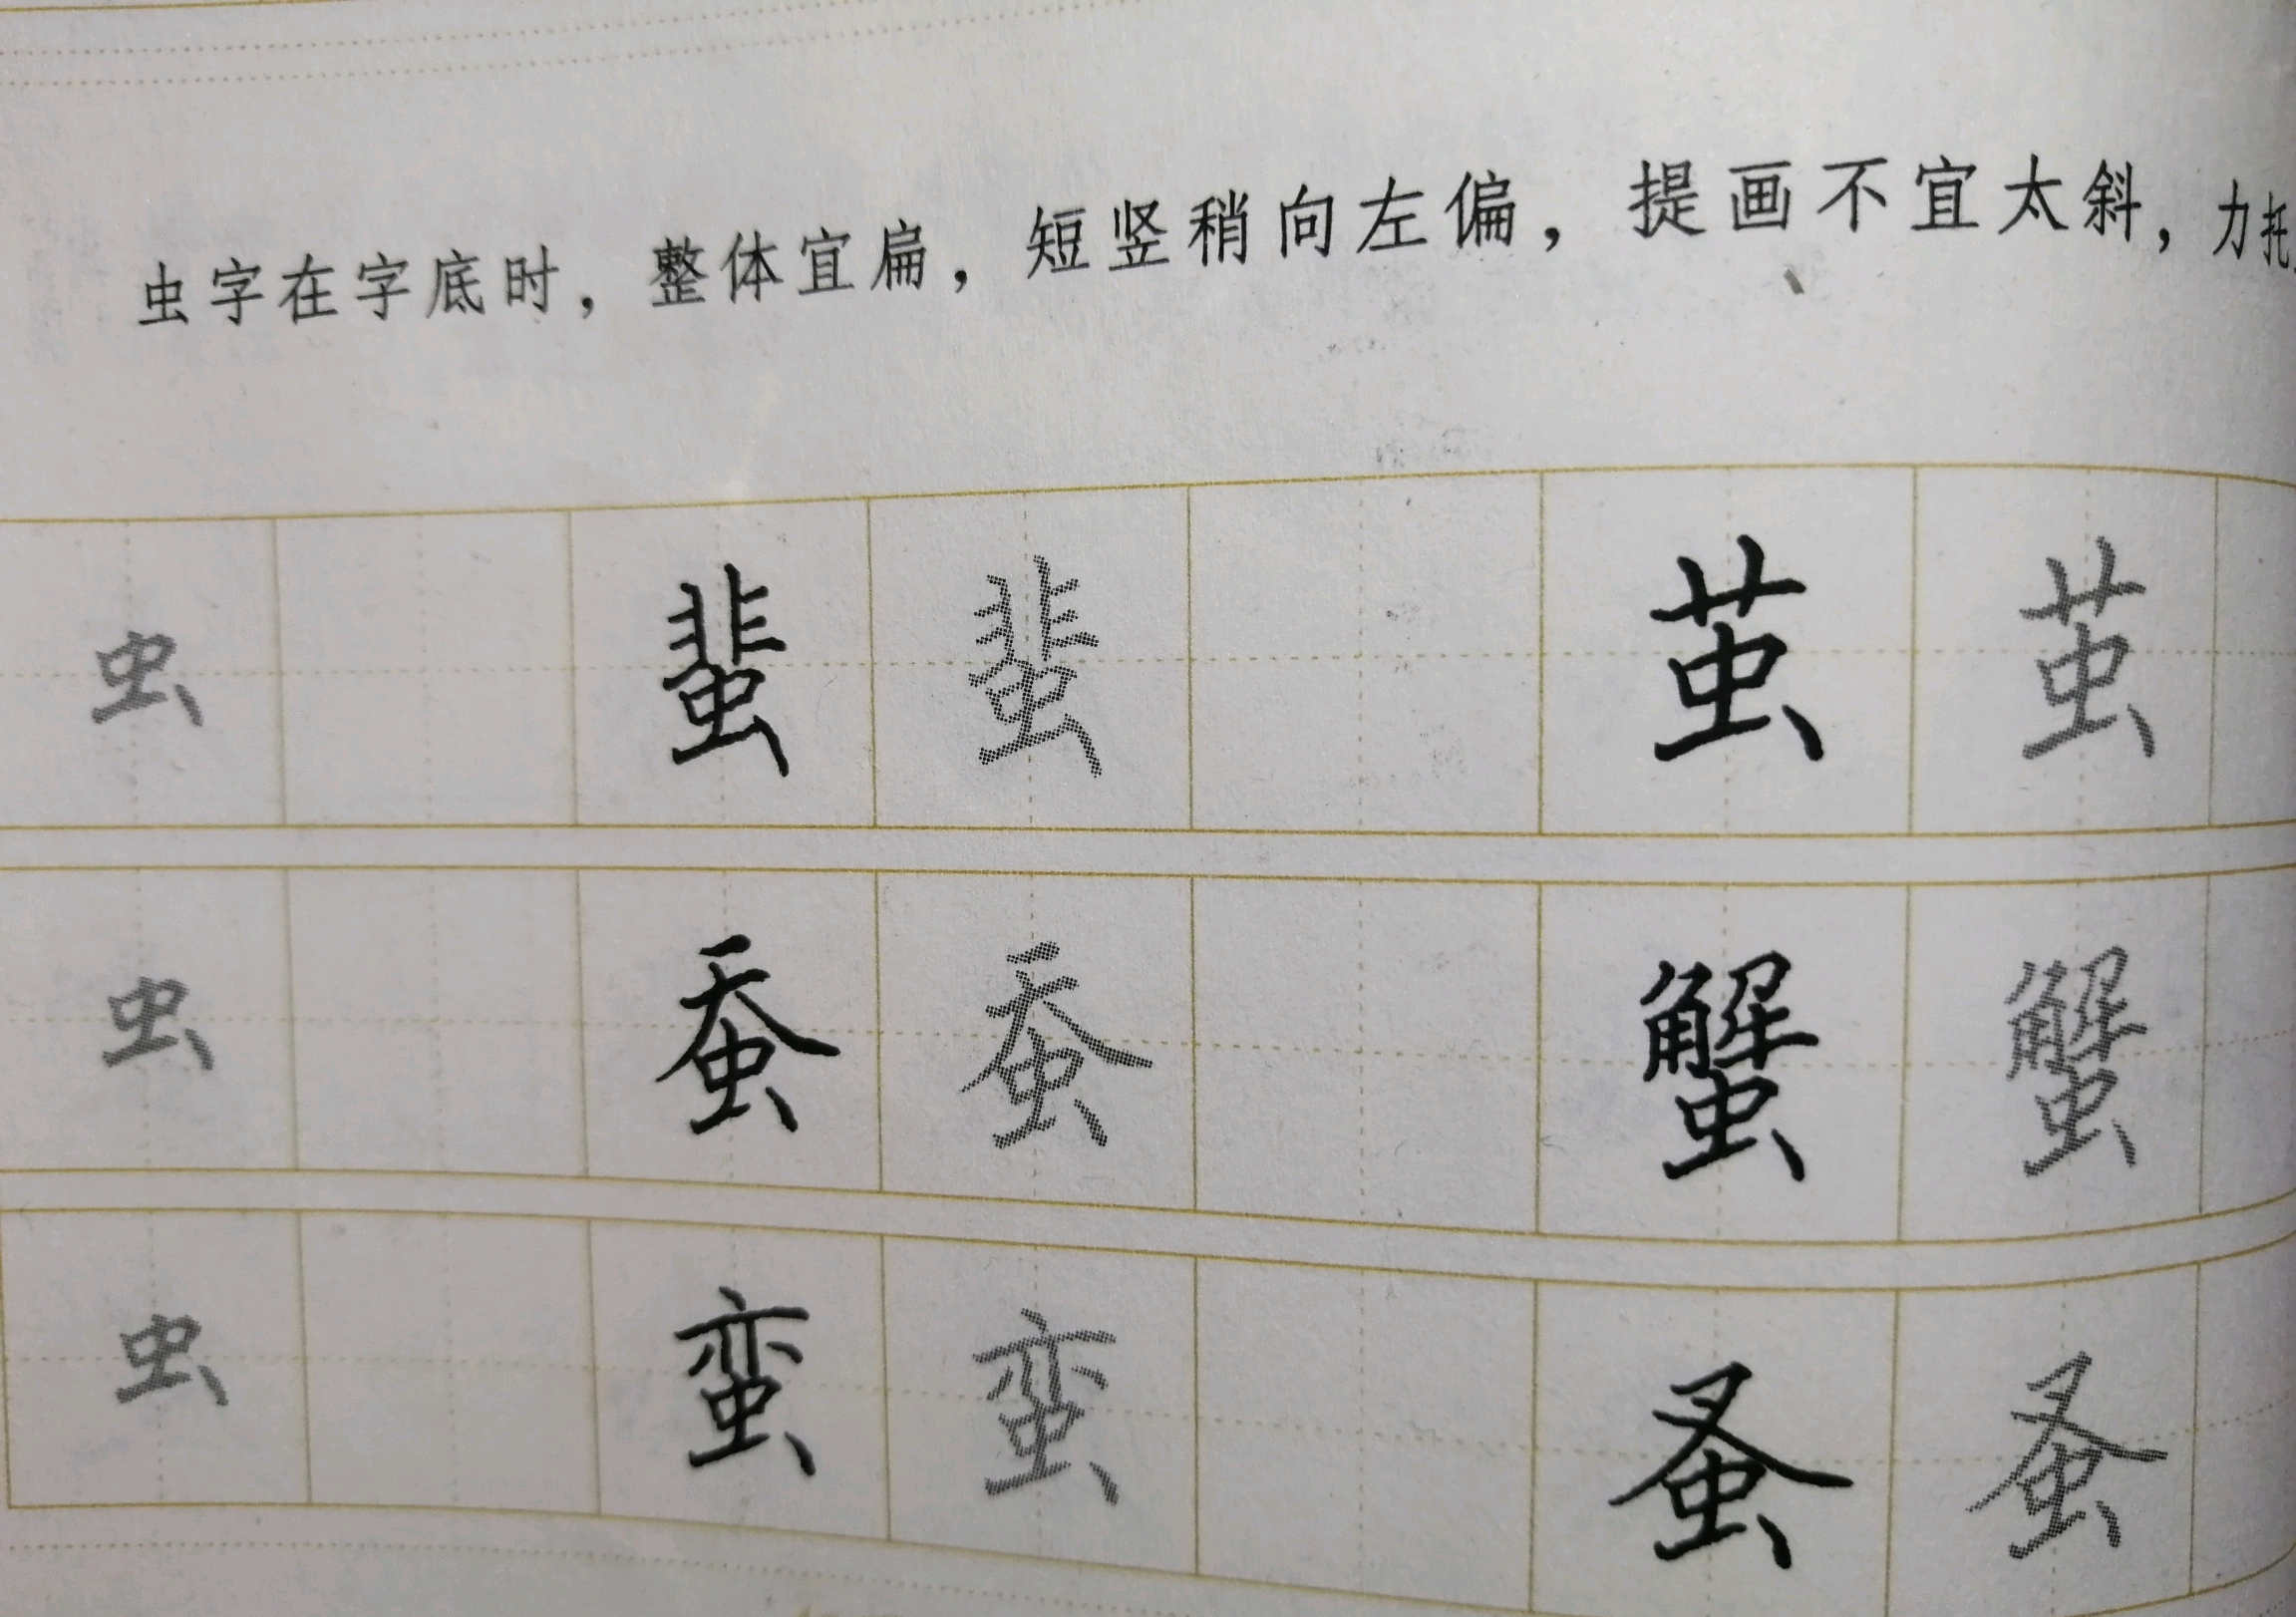 虫字在字底时，整体宜扁，短竖稍向左偏，提画不宜太斜，力托
虫 蜚 蜚 茧 茧
虫 蚕 蚕 蟹 蟹
虫 蛮 蛮 蚤 蚤